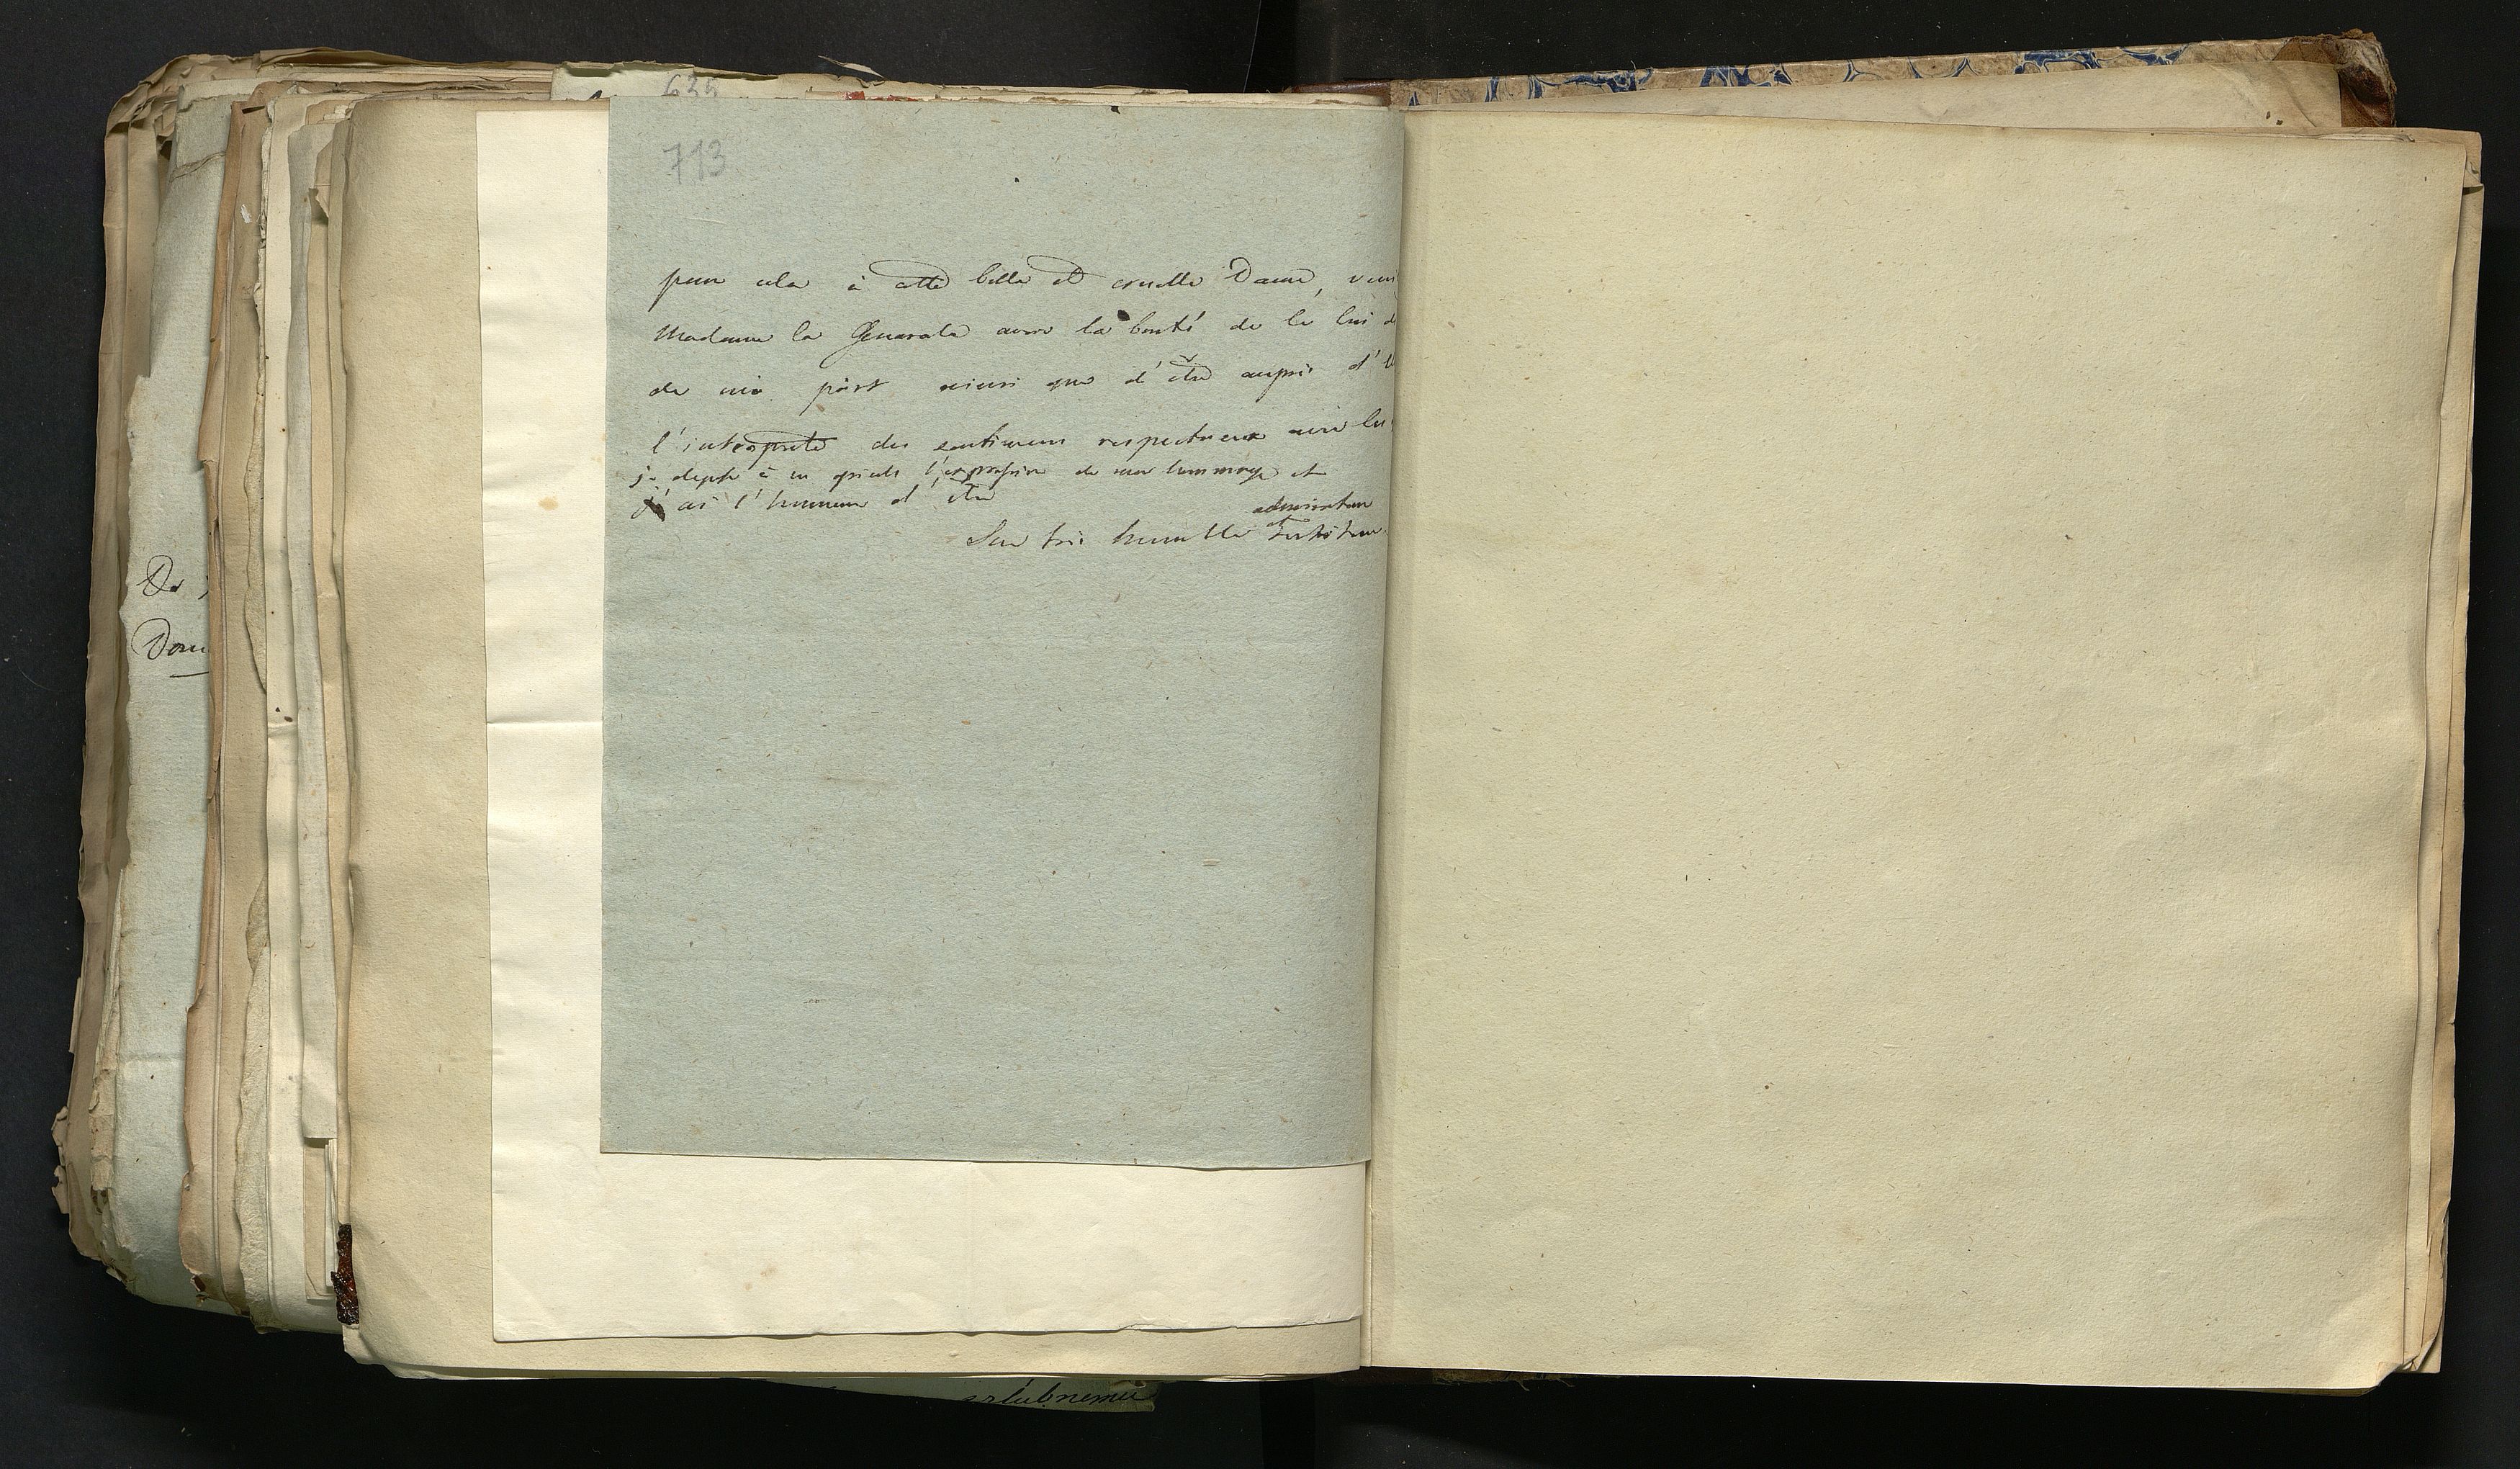 635
713
pour cela à cette belle et cruelle Dame, veui
Madame la Generale avoir la bonté de le lui d
de ma part ainsi que d'être auprès d'
l'interprète des sentimens respectueux
je dépose à ses pieds l'expression de mon hommage et
j'ai l'honneur d'être
admirateur
Son très humble et
De
Dom